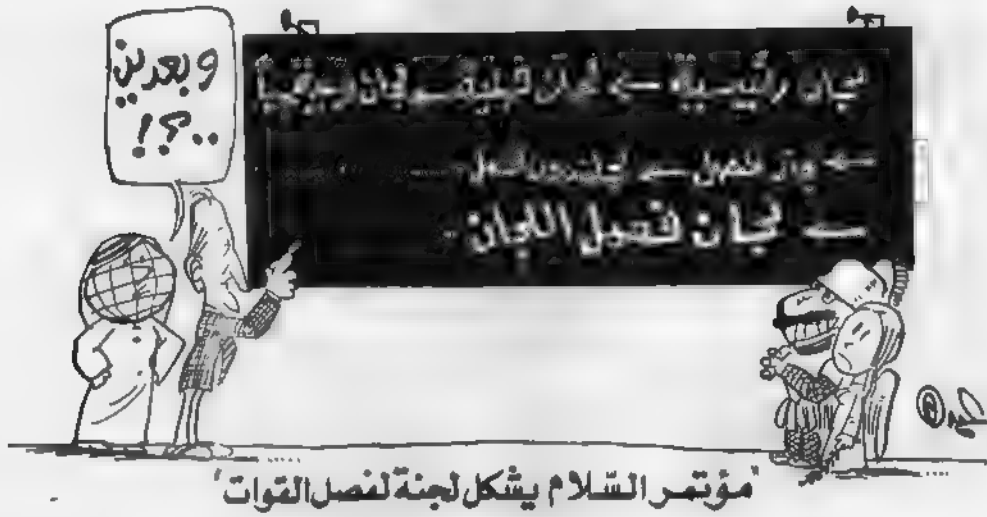 وبعدين
..؟!
لجان رئيسية ← لجان فرعية ← لجان
← لجان
← لجان فصل اللجان .
'مؤتمر السلام يشكل لجنة لفصل القوات'